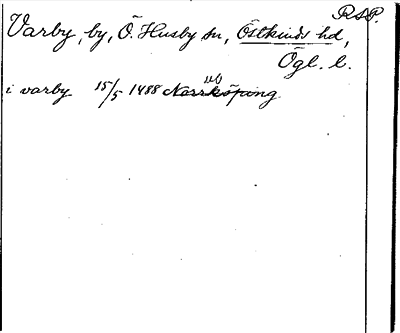 RAP.
Varby, by, Ö. Husby sn, Östkinds hd,
Ögl. l.
i varby 15/5 1488 Norrköping